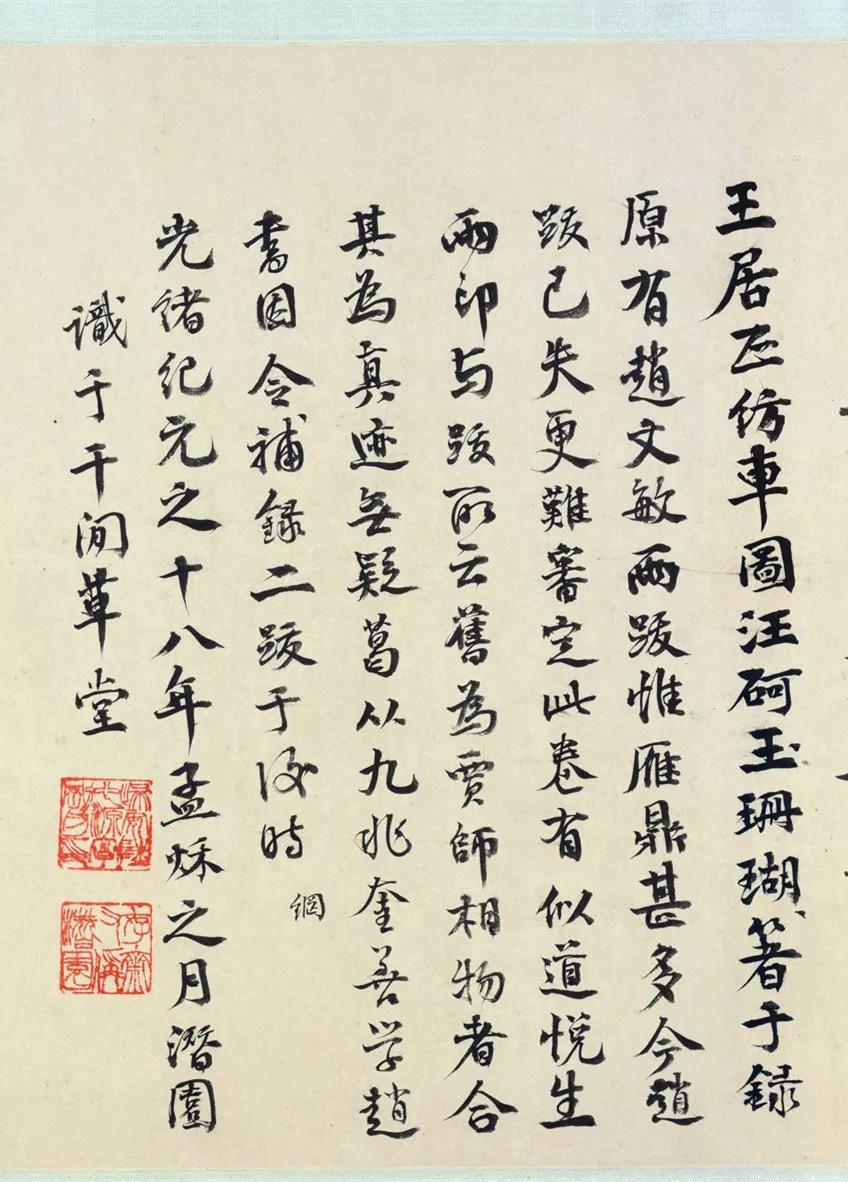 王居正仿車圖汪砢玉珊瑚箸于録
原有趙文敏兩跋惟雁鼎甚多今趙
跋已失更難審定此卷有似道悅生
兩印与跋所云舊為賈師相物者合
其為真迹無疑葛从九兆奎善学趙
書因令補録二跋于後時
綱
光緒紀元之十八年孟秌之月潛園
識于千閒草堂